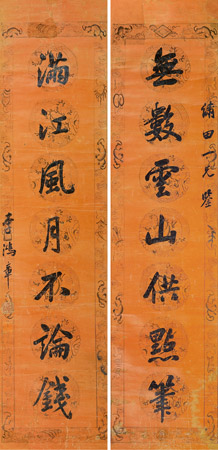 田一兄鑒
無數雲山供點筆
滿江風月不論錢
李鴻章